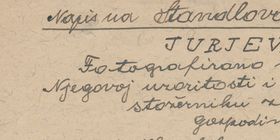 Napis na Standlovo
JURJEV
Fotografirano
Njegovoj uzoritosti i
stožerniku
gospodin